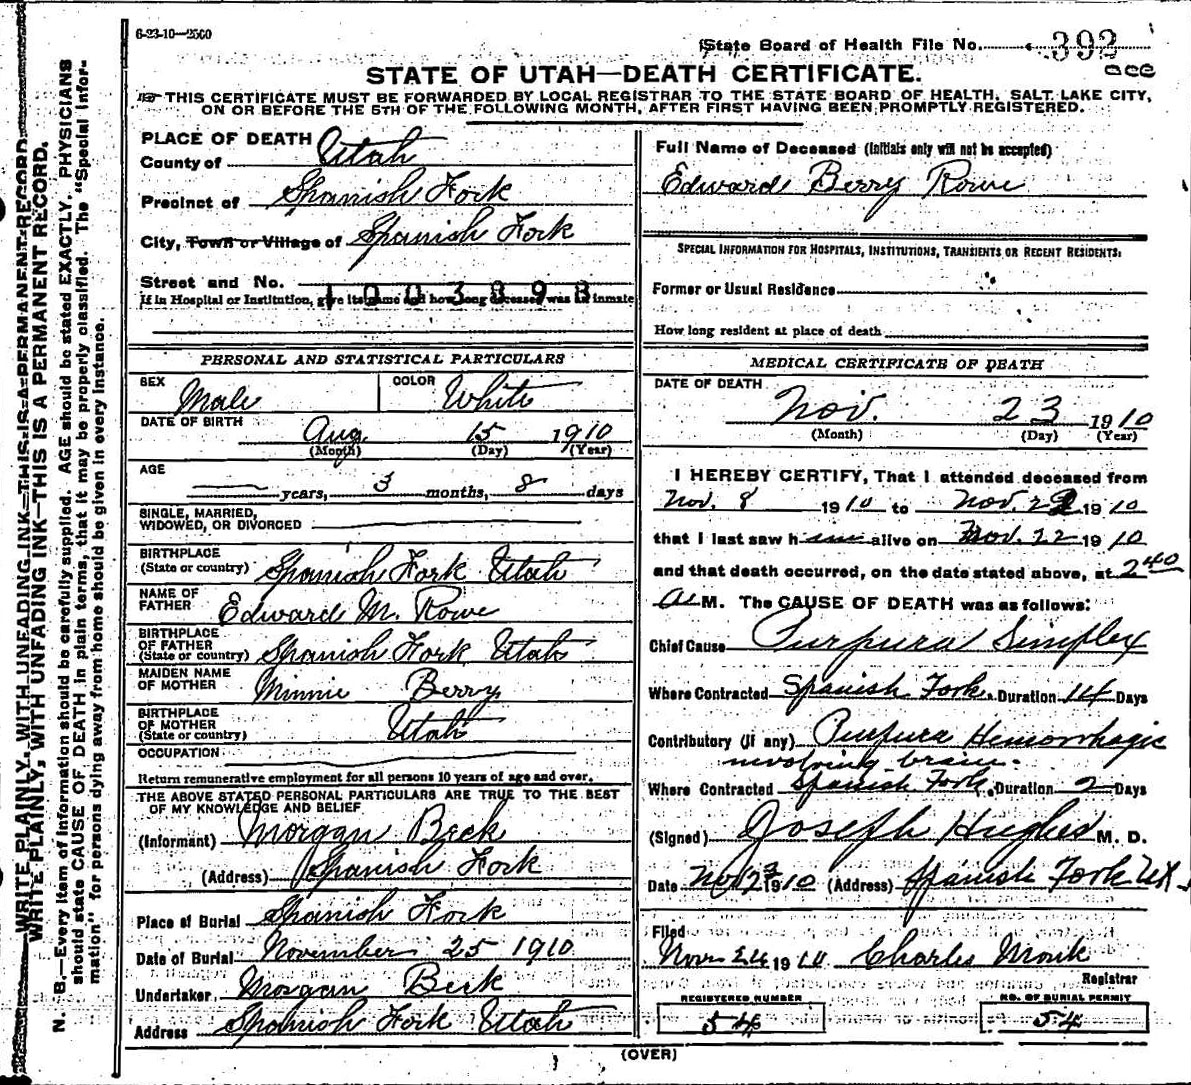 6-23-10—2500
State Board of Health File No. 392
STATE OF UTAH—DEATH CERTIFICATE.
THIS CERTIFICATE MUST BE FORWARDED BY LOCAL REGISTRAR TO THE STATE BOARD OF HEALTH, SALT LAKE CITY,
ON OR BEFORE THE 5TH OF THE FOLLOWING MONTH, AFTER FIRST HAVING BEEN PROMPTLY REGISTERED.
WRITE PLAINLY, WITH UNFADING INK—THIS IS A PERMANENT RECORD.
WRITE PLAINLY, WITH UNFADING INK—THIS IS A PERMANENT RECORD.
N. B.—Every item of information should be carefully supplied. AGE should be stated EXACTLY. PHYSICIANS
should state CAUSE OF DEATH in plain terms, that it may be properly classified. The "Special Infor-
mation" for persons dying away from home should be given in every instance.
PLACE OF DEATH
County of Utah
Precinct of Spanish Fork
City, Town or Village of Spanish Fork
Street and No.
1003898
If in Hospital or Institution, give its name and how long deceased was inmate
PERSONAL AND STATISTICAL PARTICULARS
SEX Male COLOR White
DATE OF BIRTH
Aug. 15 1910
(Month) (Day) (Year)
AGE
years, 3 months, 8 days
SINGLE, MARRIED,
WIDOWED, OR DIVORCED
BIRTHPLACE
(State or country) Spanish Fork Utah
NAME OF
FATHER Edward M. Rowe
BIRTHPLACE
OF FATHER
(State or country) Spanish Fork Utah
MAIDEN NAME
OF MOTHER Minnie Berry
BIRTHPLACE
OF MOTHER
(State or country) Utah
OCCUPATION
Return remunerative employment for all persons 10 years of age and over.
THE ABOVE STATED PERSONAL PARTICULARS ARE TRUE TO THE BEST
OF MY KNOWLEDGE AND BELIEF
(Informant) Morgan Beck
(Address) Spanish Fork
Place of Burial Spanish Fork
Date of Burial November 25 1910
Undertaker Morgan Beck
Address Spanish Fork Utah
Full Name of Deceased (Initials only will not be accepted)
Edward Berry Rowe
SPECIAL INFORMATION FOR HOSPITALS, INSTITUTIONS, TRANSIENTS OR RECENT RESIDENTS:
Former or Usual Residence
How long resident at place of death
MEDICAL CERTIFICATE OF DEATH
DATE OF DEATH
Nov. 23 1910
(Month) (Day) (Year)
I HEREBY CERTIFY, That I attended deceased from
Nov. 8 1910 to Nov. 1910
that I last saw him alive on Nov. 22 1910
and that death occurred, on the date stated above, at 2 40
a M. The CAUSE OF DEATH was as follows:
Chief Cause Purpura Simplex
Where Contracted Spanish Fork. Duration 14 Days
Contributory (if any) Purpura Hemorrhagic
involving brain.
Where Contracted Spanish Fork. Duration 2 Days
(Signed) Joseph Hughes M. D.
Date Nov 23 1910 (Address) Spanish Fork Ut
Filed
Nov 24 1910 Charles Monk
Registrar
REGISTERED NUMBER
54
NO. OF BURIAL PERMIT
54
(OVER)